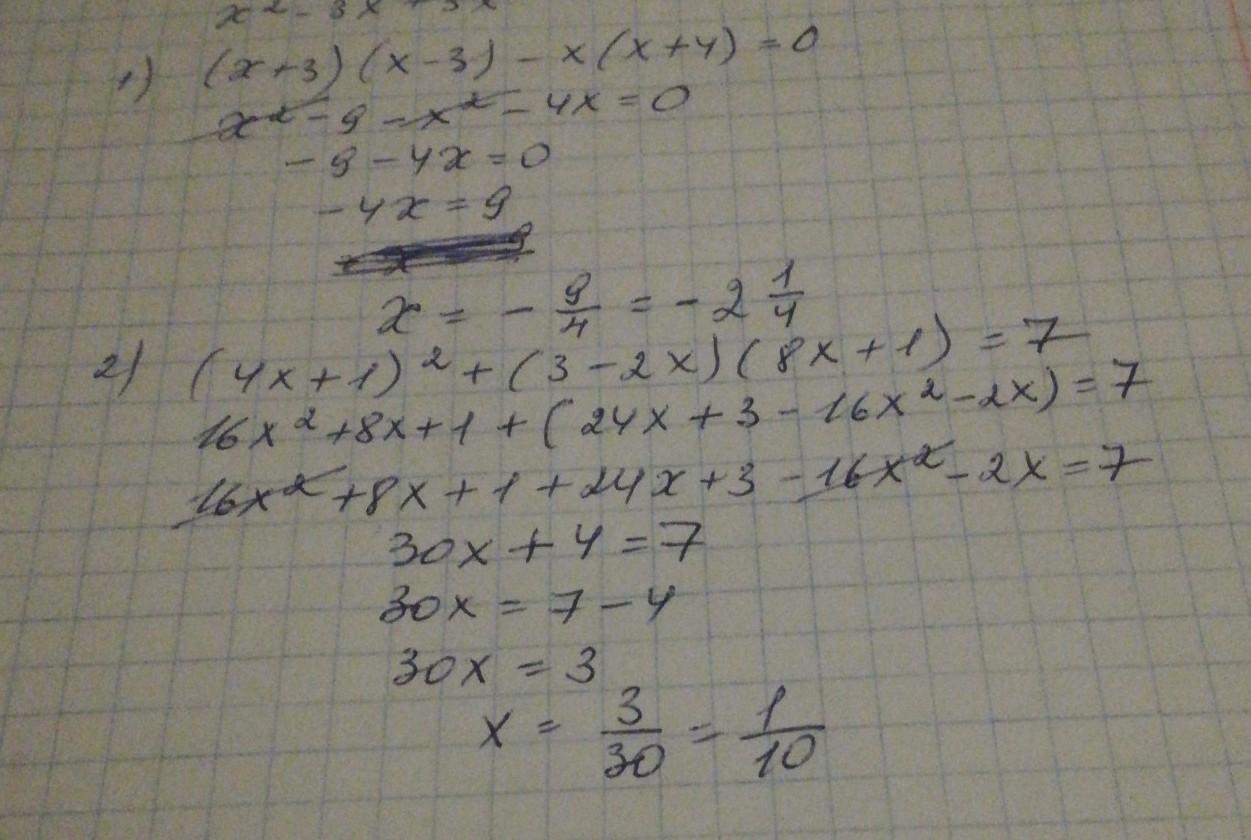 x² - 3x + 3x
1) (x+3)(x-3) - x(x+4) = 0
x² - 9 - x² - 4x = 0
- 9 - 4x = 0
- 4x = 9
x = - 9/4 = - 2 1/4
2) (4x+1)² + (3-2x)(8x+1) = 7
16x² + 8x + 1 + (24x + 3 - 16x² - 2x) = 7
16x² + 8x + 1 + 24x + 3 - 16x² - 2x = 7
30x + 4 = 7
30x = 7 - 4
30x = 3
x = 3/30 = 1/10